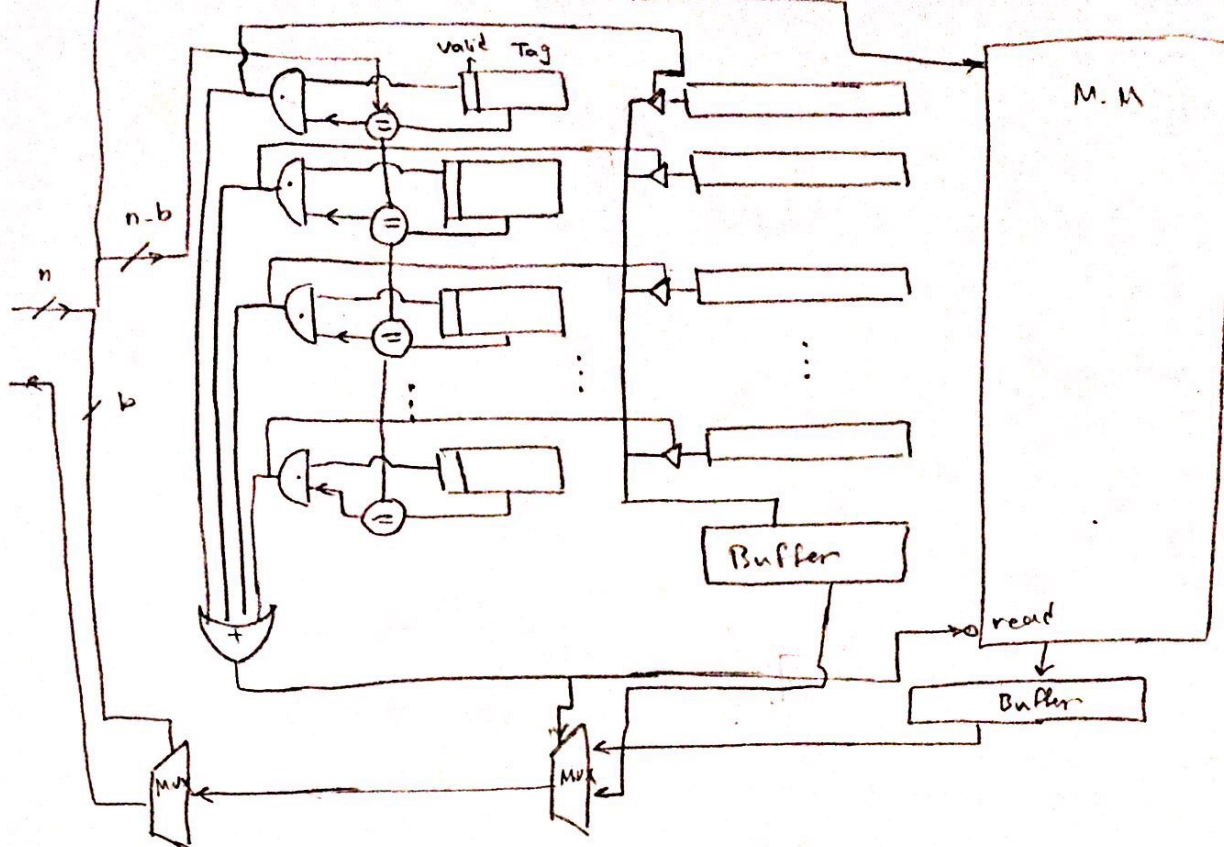 valid Tag
M.M
=
n-b
=
n
=
b
=
Buffer
+
read
Buffer
MUX
MUX